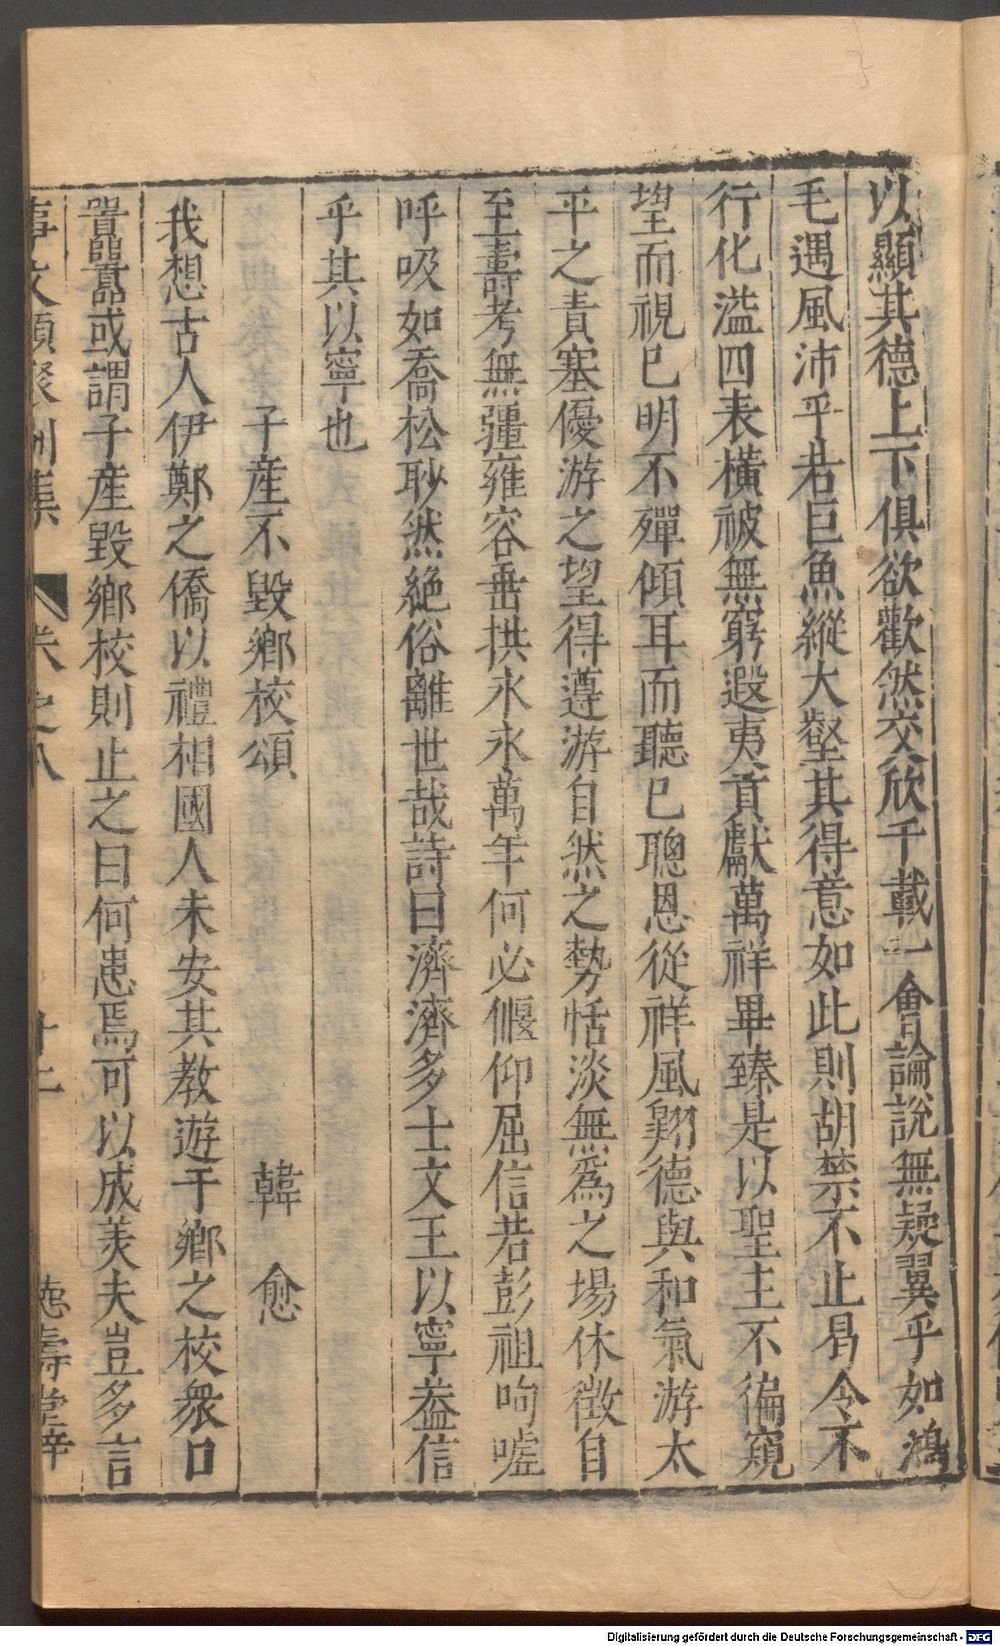 以顯其德上下俱欲歡然交欣千載一會論說無疑翼乎如鴻
毛遇風沛乎若巨魚縱大壑其得意如此則胡禁不止曷令不
行化溢四表橫被無窮遐夷貢獻萬祥畢臻是以聖主不徧窺
望而視已明不殫傾耳而聽已聰恩從祥風翺德與和氣游太
平之責塞優游之望得遵游自然之勢恬淡無爲之場休徵自
至壽考無疆雍容垂拱永永萬年何必偃仰屈信若彭祖呴噓
呼吸如喬松眇然絶俗離世哉詩曰濟濟多士文王以寧葢信
乎其以寧也
子產不毀鄉校頌 韓愈
我想古人伊鄭之僑以禮相國人未安其教遊于鄉之校衆口
嚻嚻或謂子產毀鄉校則止之曰何患焉可以成美夫豈多言
事文類聚別集 卷之八 十二 德壽堂梓
Digitalisierung gefördert durch die Deutsche Forschungsgemeinschaft - DFG